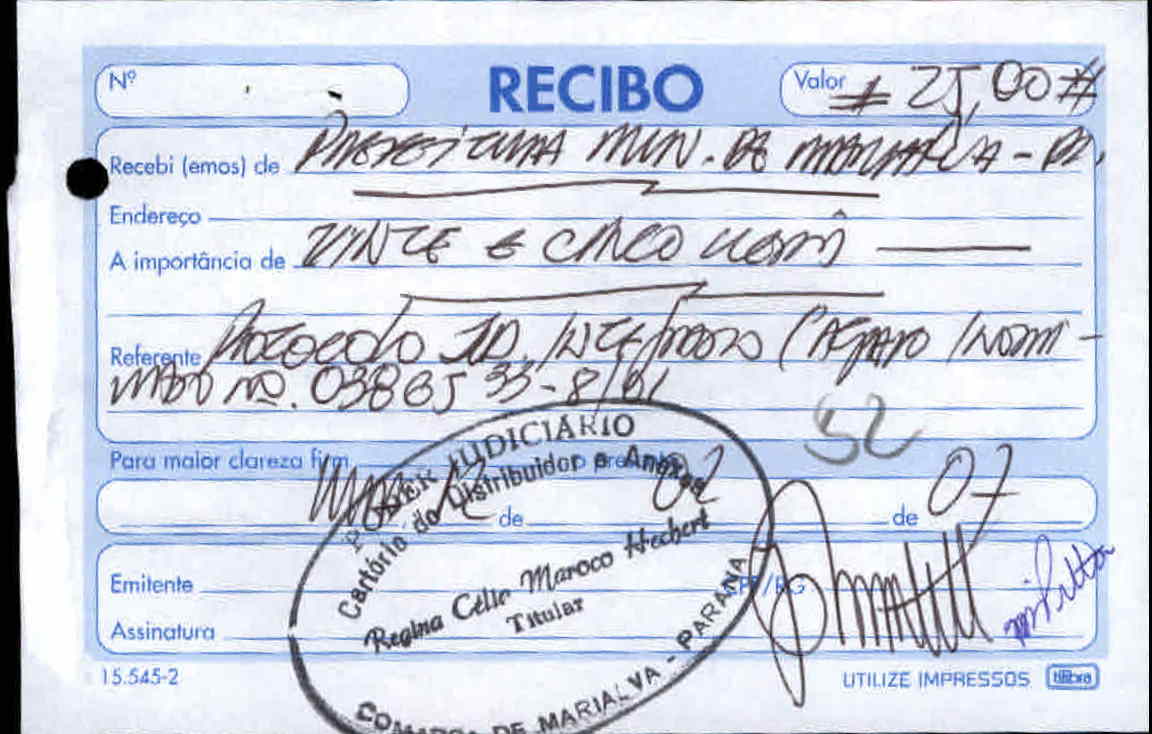 Nº
RECIBO
Valor # 25,00 #
Recebi (emos) de PREFEITURA MUN. DE MARIALVA - PR.
Endereço
A importância de VINTE E CINCO REAIS
Referente PROTOCOLO
Nº. 0386533-8/01
52
Para maior clareza firm o presente
02 de de 07
Emitente CPF/RG
Assinatura
PODER JUDICIÁRIO
Cartório do Distribuidor e Anexos
Regina Célia Maroco Hechert
Titular
COMARCA DE MARIALVA - PARANÁ
15.545-2
UTILIZE IMPRESSOS tilibra